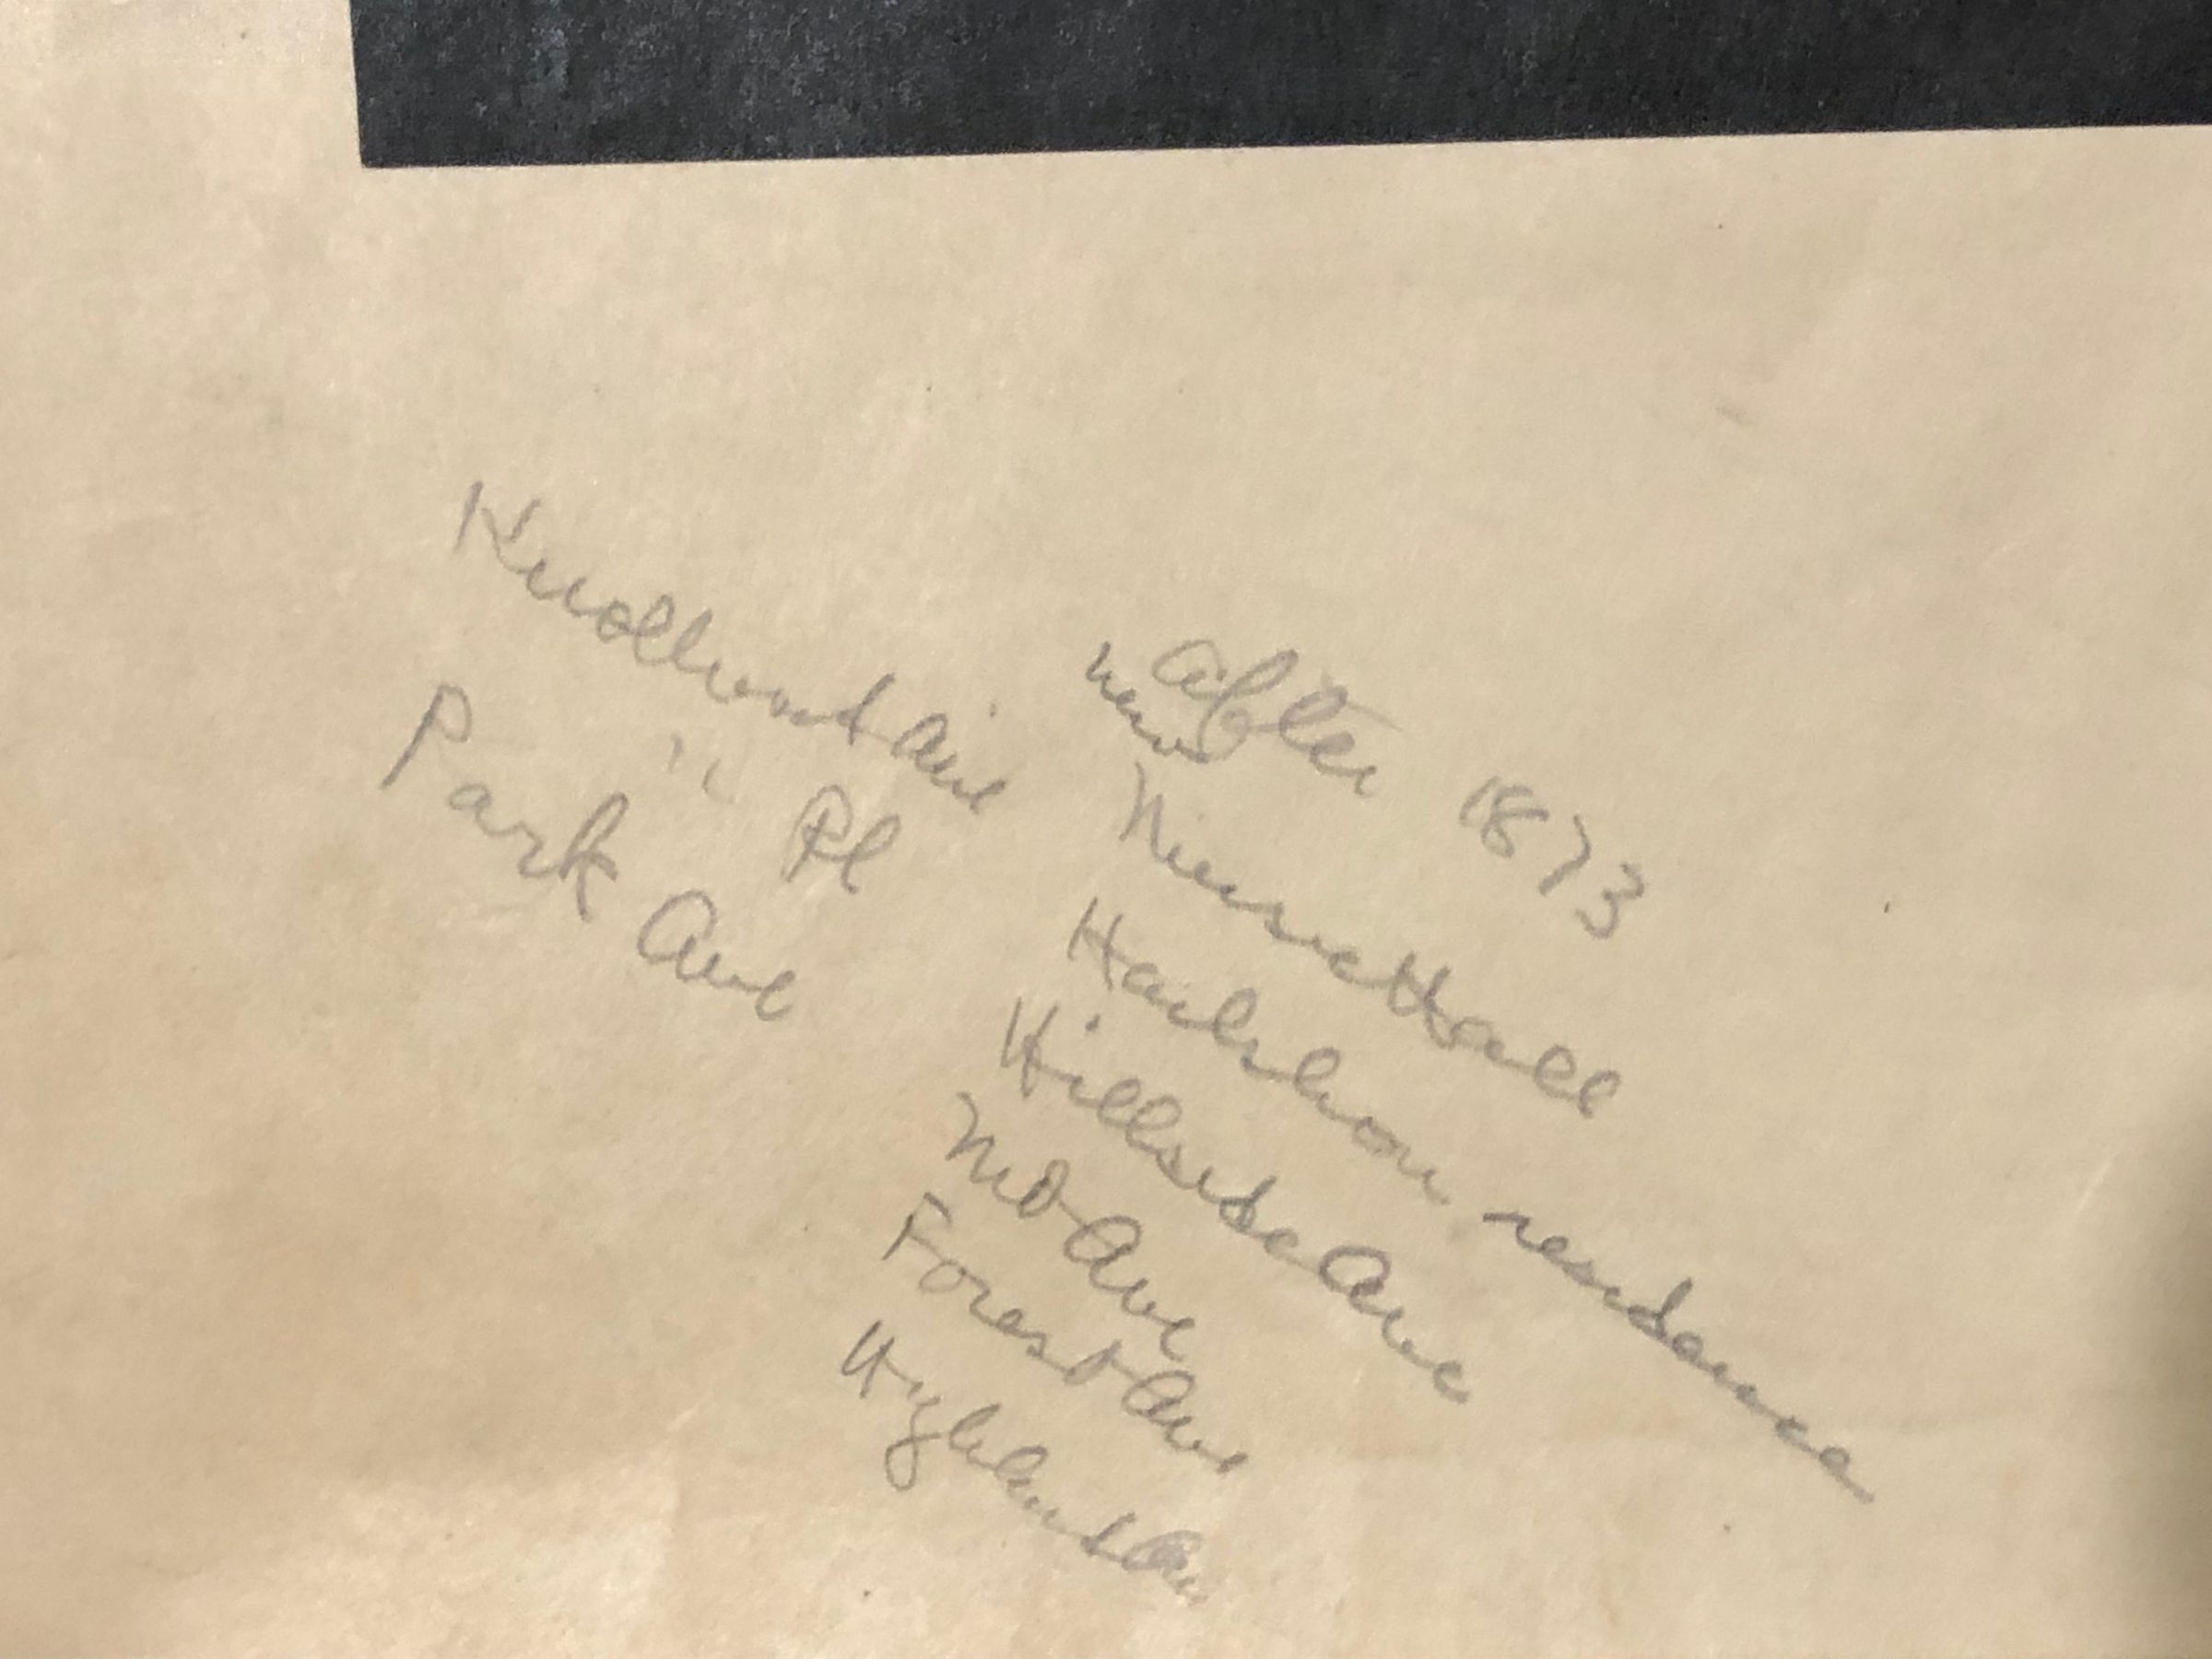 Knollwood Ave
" Pl
Park Ave
after 1873
new
Music Hall
Hailshorn residence
Hillside Ave
No Ave
Forest Ave
Hyland Av